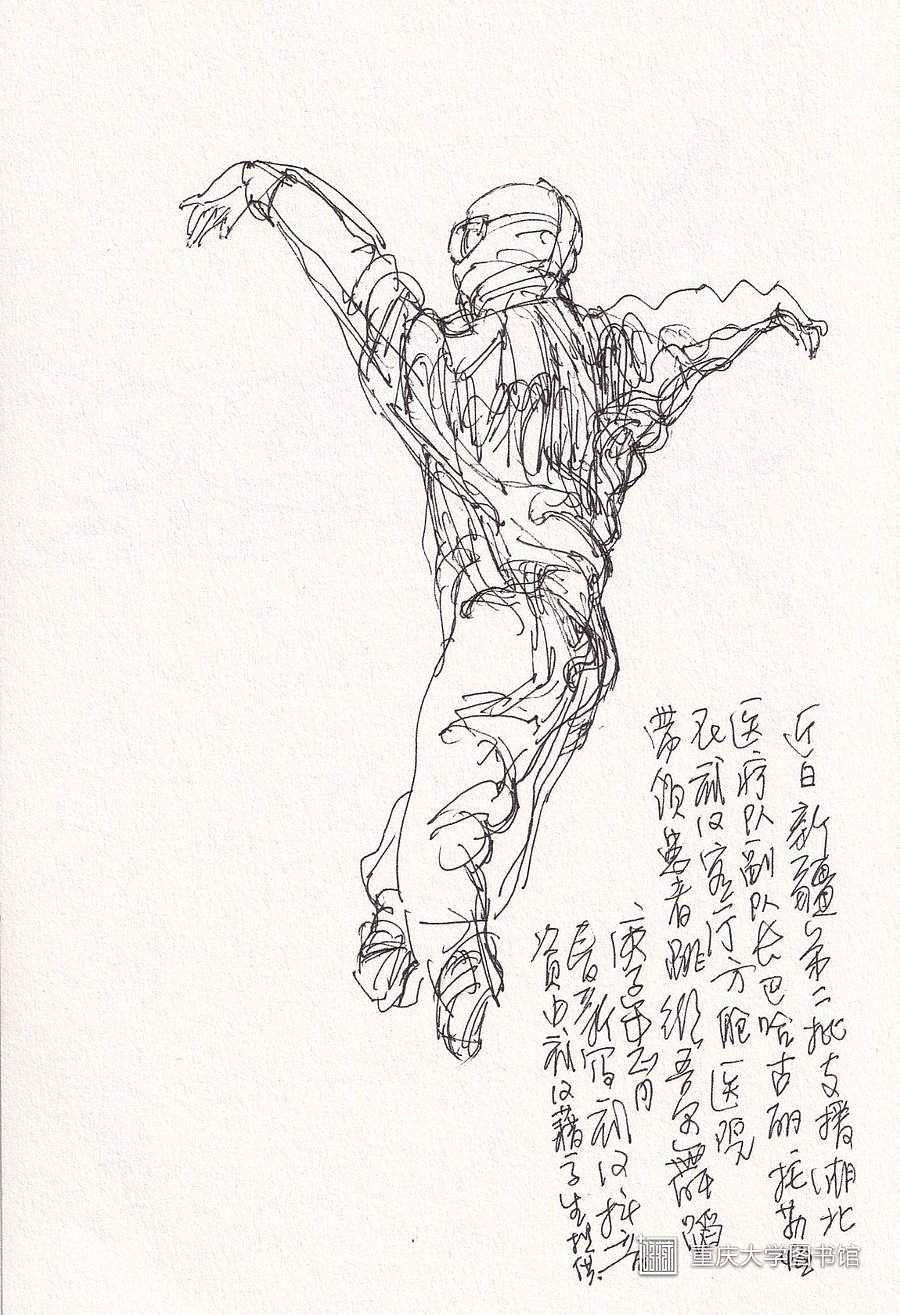 近日新疆第二批支援湖北
医疗队副队长巴哈古丽·托勒恒
在武汉客厅方舱医院
带领患者跳维吾尔舞蹈
庚子年正月
写武汉抗疫
资由武汉籍学生提供
重庆大学图书馆